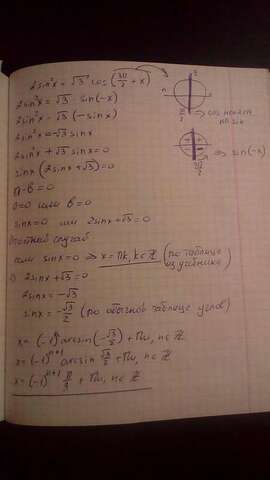 2sin²x = √3 cos(3π/2 + x)
2sin²x = √3 · sin(-x)
2sin²x - √3 (-sinx)
2sin²x = -√3 sinx
2sin²x + √3 sinx = 0
sinx (2sinx + √3) = 0
a·b = 0
a=0 или b=0
sinx=0 или 2sinx+√3=0
случай
sinx=0 => x = πk, k∈Z (по таблице из учебника)
2sinx+√3=0
2sinx = -√3
sinx = -√3/2 (по обычной таблице углов)
x = (-1)ⁿ arcsin(-√3/2) + πn, n∈Z
x = (-1)ⁿ⁺¹ arcsin √3/2 + πn, n∈Z
x = (-1)ⁿ⁺¹ π/3 + πn, n∈Z
=> cos
на sin
3π/2
=> sin(-x)